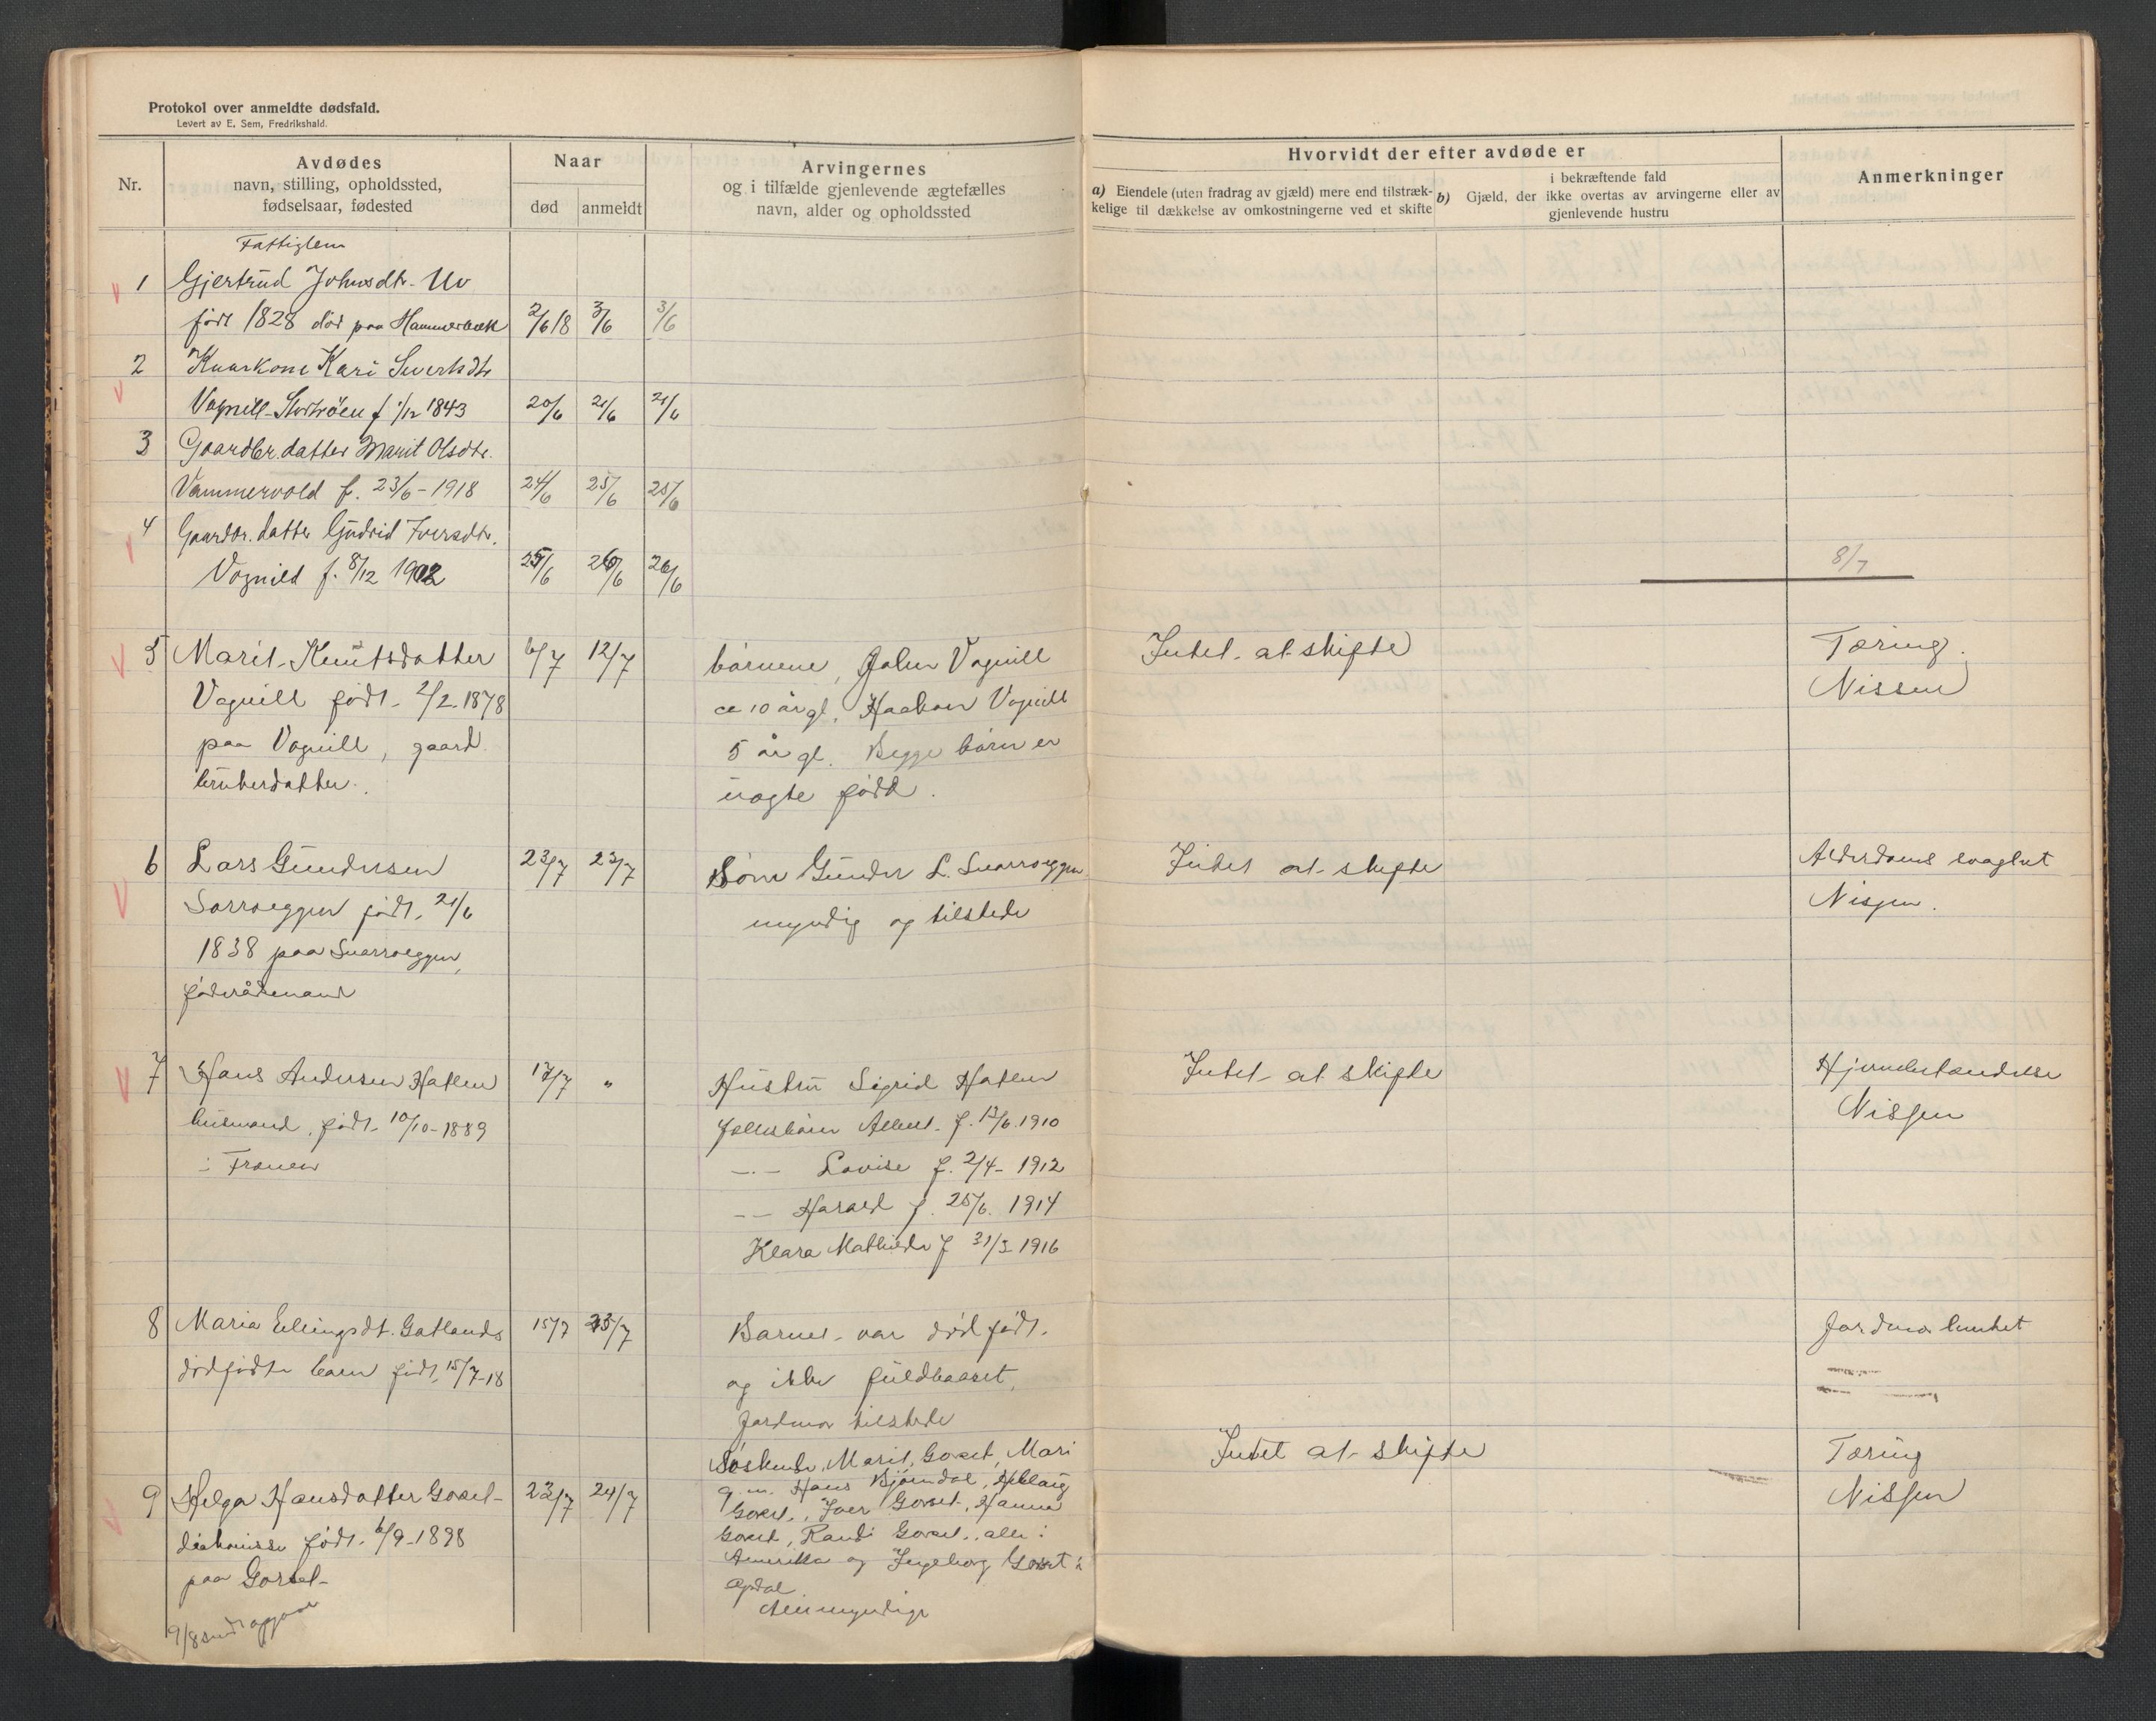 Protokol over anmeldte dødsfald.
Levert av E. Sem, Fredrikshald.
Nr.
Avdødes
navn, stilling, opholdssted,
fødselsaar, fødested
Naar
død
anmeldt
Arvingernes
og i tilfælde gjenlevende ægtefælles
navn, alder og opholdssted
Hvorvidt der efter avdøde er
a) Eiendele (uten fradrag av gjæld) mere end tilstræk-
kelige til dækkelse av omkostningerne ved et skifte
i bekræftende fald
b) Gjæld, der ikke overtas av arvingerne eller av
gjenlevende hustru
Anmerkninger
Fattiglem
1 Gjertrud Johnsdtr. Uv
født 1828 død paa Hammerbæk 2/6 18 3/6 3/6
2 Kaarkone Kari Sivertsdtr
Vognill-Stortrøen f 1/12 1843 20/6 21/6 21/6
3 Gaardbr. datter Marit Olsdtr.
Vammervold f. 23/6 - 1918 24/6 25/6 25/6
4 Gaardbr. datter Gudrid Iversdtr.
Vognild f. 8/12 1902 25/6 26/6 26/6
8/7
5 Marit Knutsdatter 6/7 12/7 børnene, John Vognill Intet at skifte Tæring.
Vognill født 2/2 1878 ca 10 år gl, Haakon Vognill Nissen
paa Vognill, gaard 5 år gl. Begge børn er
bruker datter. uægte født.
6 Lars Gundersen 23/7 23/7 Sønn Gunder L. Snarroeggen Intet at skifte Alderdoms svaghet
født 21/6 myndig og tilstede Nissen.
1838 paa Snarroeggen,
føderådsmand
7 Hans Andersen Hatlen 17/7 " Hustru Sigrid Hatlen Intet at skifte Hjernebetændelse
husmand, født 10/10 - 1889 Fællesbørn f. 13/6 1910 Nissen
i Frænen
-.- Lovise f. 2/4 - 1912
-- Harald f. 25/6. 1914
Klara Mathilde f 31/3 1916
8 Maria Ellingsdt. Gatlands 15/7 23/7 Barnet var død født. Jordmor
dødfødte barn født 15/7-18 og ikke fuldbaaret,
Jordmor tilstede
Søskende, Marit Gorset, Mari Intet at skifte Tæring
9 Helga Hansdatter Gorset 23/7 24/7 g.m. Hans Bjørndal, Nissen
Gorset, Iver Gorset, Hanna
diakonisse født 6/9 - 1898 Gorset, Randi Gorset, alle i
Amerika og Ingeborg Gorset i
paa Gorset
Opdal
Alle myndige
9/8 sendt opgave